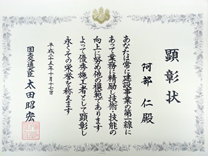 顕彰状
阿部 仁殿
あなたは常に建設事業の第一線に
あって業務に精励し技術・技能の
向上に努め他の模範であります
よって優秀施工者として顕彰し
永くその栄誉を称えます
平成二十五年十月十七日
国土交通大臣 太田昭宏